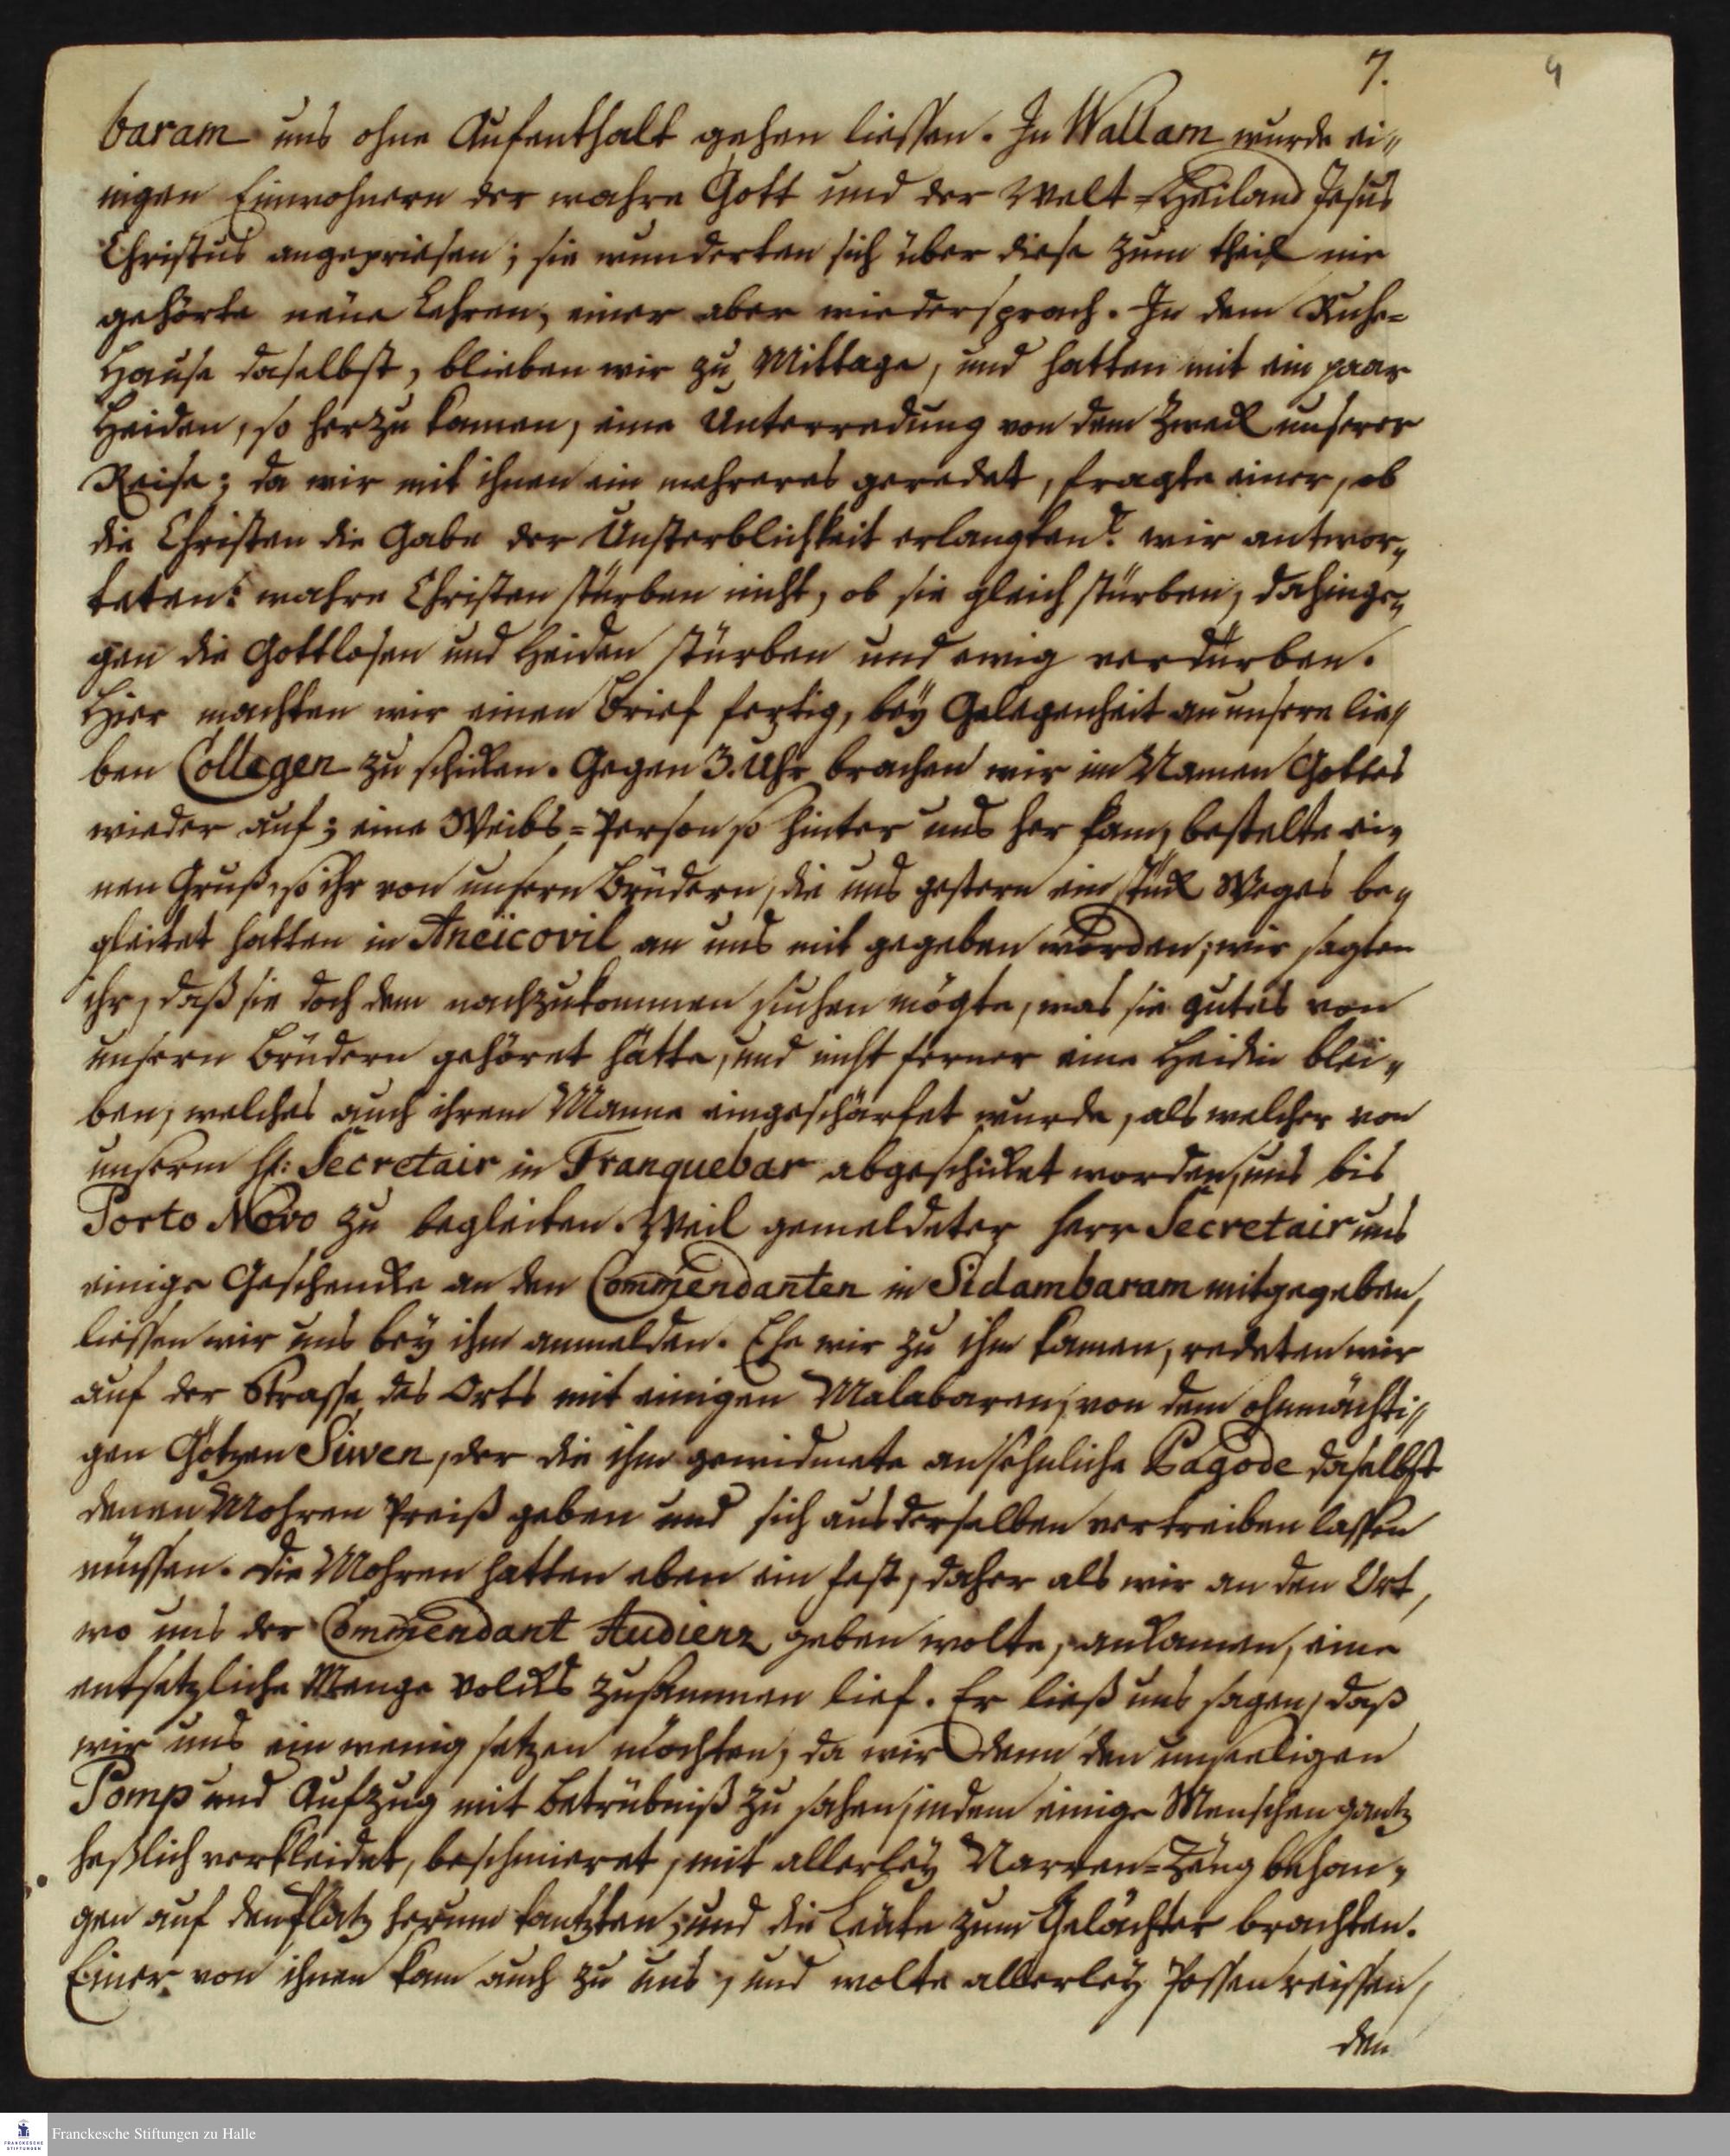 7.
4
baram uns ohne Aufenthalt gehen liessen. In Wallam wurde ei„
nigen Einwohnern der wahre Gott und der Welt=Heiland Jesus
Christus angepriesen; sie wunderten sich über diese zum theil nie
gehörte neue Lehren, einer aber wiedersprach. In dem Ruhe=
Hause daselbst, blieben wir zu Mittage, und hatten mit ein paar
Heiden, so herzu kamen, eine Unterredung von dem Zweck unserer
Reise; da wir mit ihnen ein mehreres geredet, fragte einer, ob
die Christen die Gabe der Unsterblichkeit erlangten? wir antwor„
teten: wahre Christen stürben nicht, ob sie gleich stürben, dahinge„
gen die Gottlosen und Heiden stürben und ewig verdürben.
Hier machten wir einen Brief fertig, bey Gelegenheit an unsere lie„
ben Collegen zu schicken. Gegen 3. Uhr brachen wir im Namen Gottes
wieder auf; eine Weibs=Person so hinter uns her kam, bestelte ei„
nen Gruß, so ihr von unsern Brüdern, die uns gestern ein stück Weges be„
gleitet hatten in Aneicovil an uns mit gegeben worden; wir sagten
ihr, daß sie doch dem nachzukommen suchen mögte, was sie gutes von
unsern Brüdern gehöret hätte, und nicht ferner eine Heidin blei„
ben, welches auch ihrem Manne eingeschärfet wurde, als welcher von
unserm H: Secretair in Tranquebar abgeschicket worden, uns bis
Porto Novo zu begleiten. Weil gemeldeter Herr Secretair uns
einige Geschencke an den Commendanten in Sidambaram mitgegeben,
liessen wir uns bey ihm anmelden. Ehe wir zu ihm kamen, redeten wir
auf der Strasse des Orts mit einigen Malabaren, von dem ohnmächti„
gen Götzen Siwen, der die ihm gewidmete ansehnliche Pagode daselbst
denen Mohren Preiß geben und sich aus derselben vertreiben lassen
müssen. Die Mohren hatten eben ein fest, daher als wir an den Ort,
wo uns der Commendant Audienz geben wolte, ankamen, eine
entsetzliche Menge Volcks zusammen lief. Er ließ uns sagen, daß
wir uns ein wenig setzen möchten, da wir denn den unseeligen
Pomp und Aufzug mit Betrübniß zu sahen, indem einige Menschen gantz
heßlich verkleidet, beschmieret, mit allerley Narren=Zeug behan„
gen auf dem Platz herum tantzten, und die Leute zum Gelächter brachten.
Einer von ihnen kam auch zu uns, und wolte allerley Possen reissen,
den
Franckesche Stiftungen zu Halle